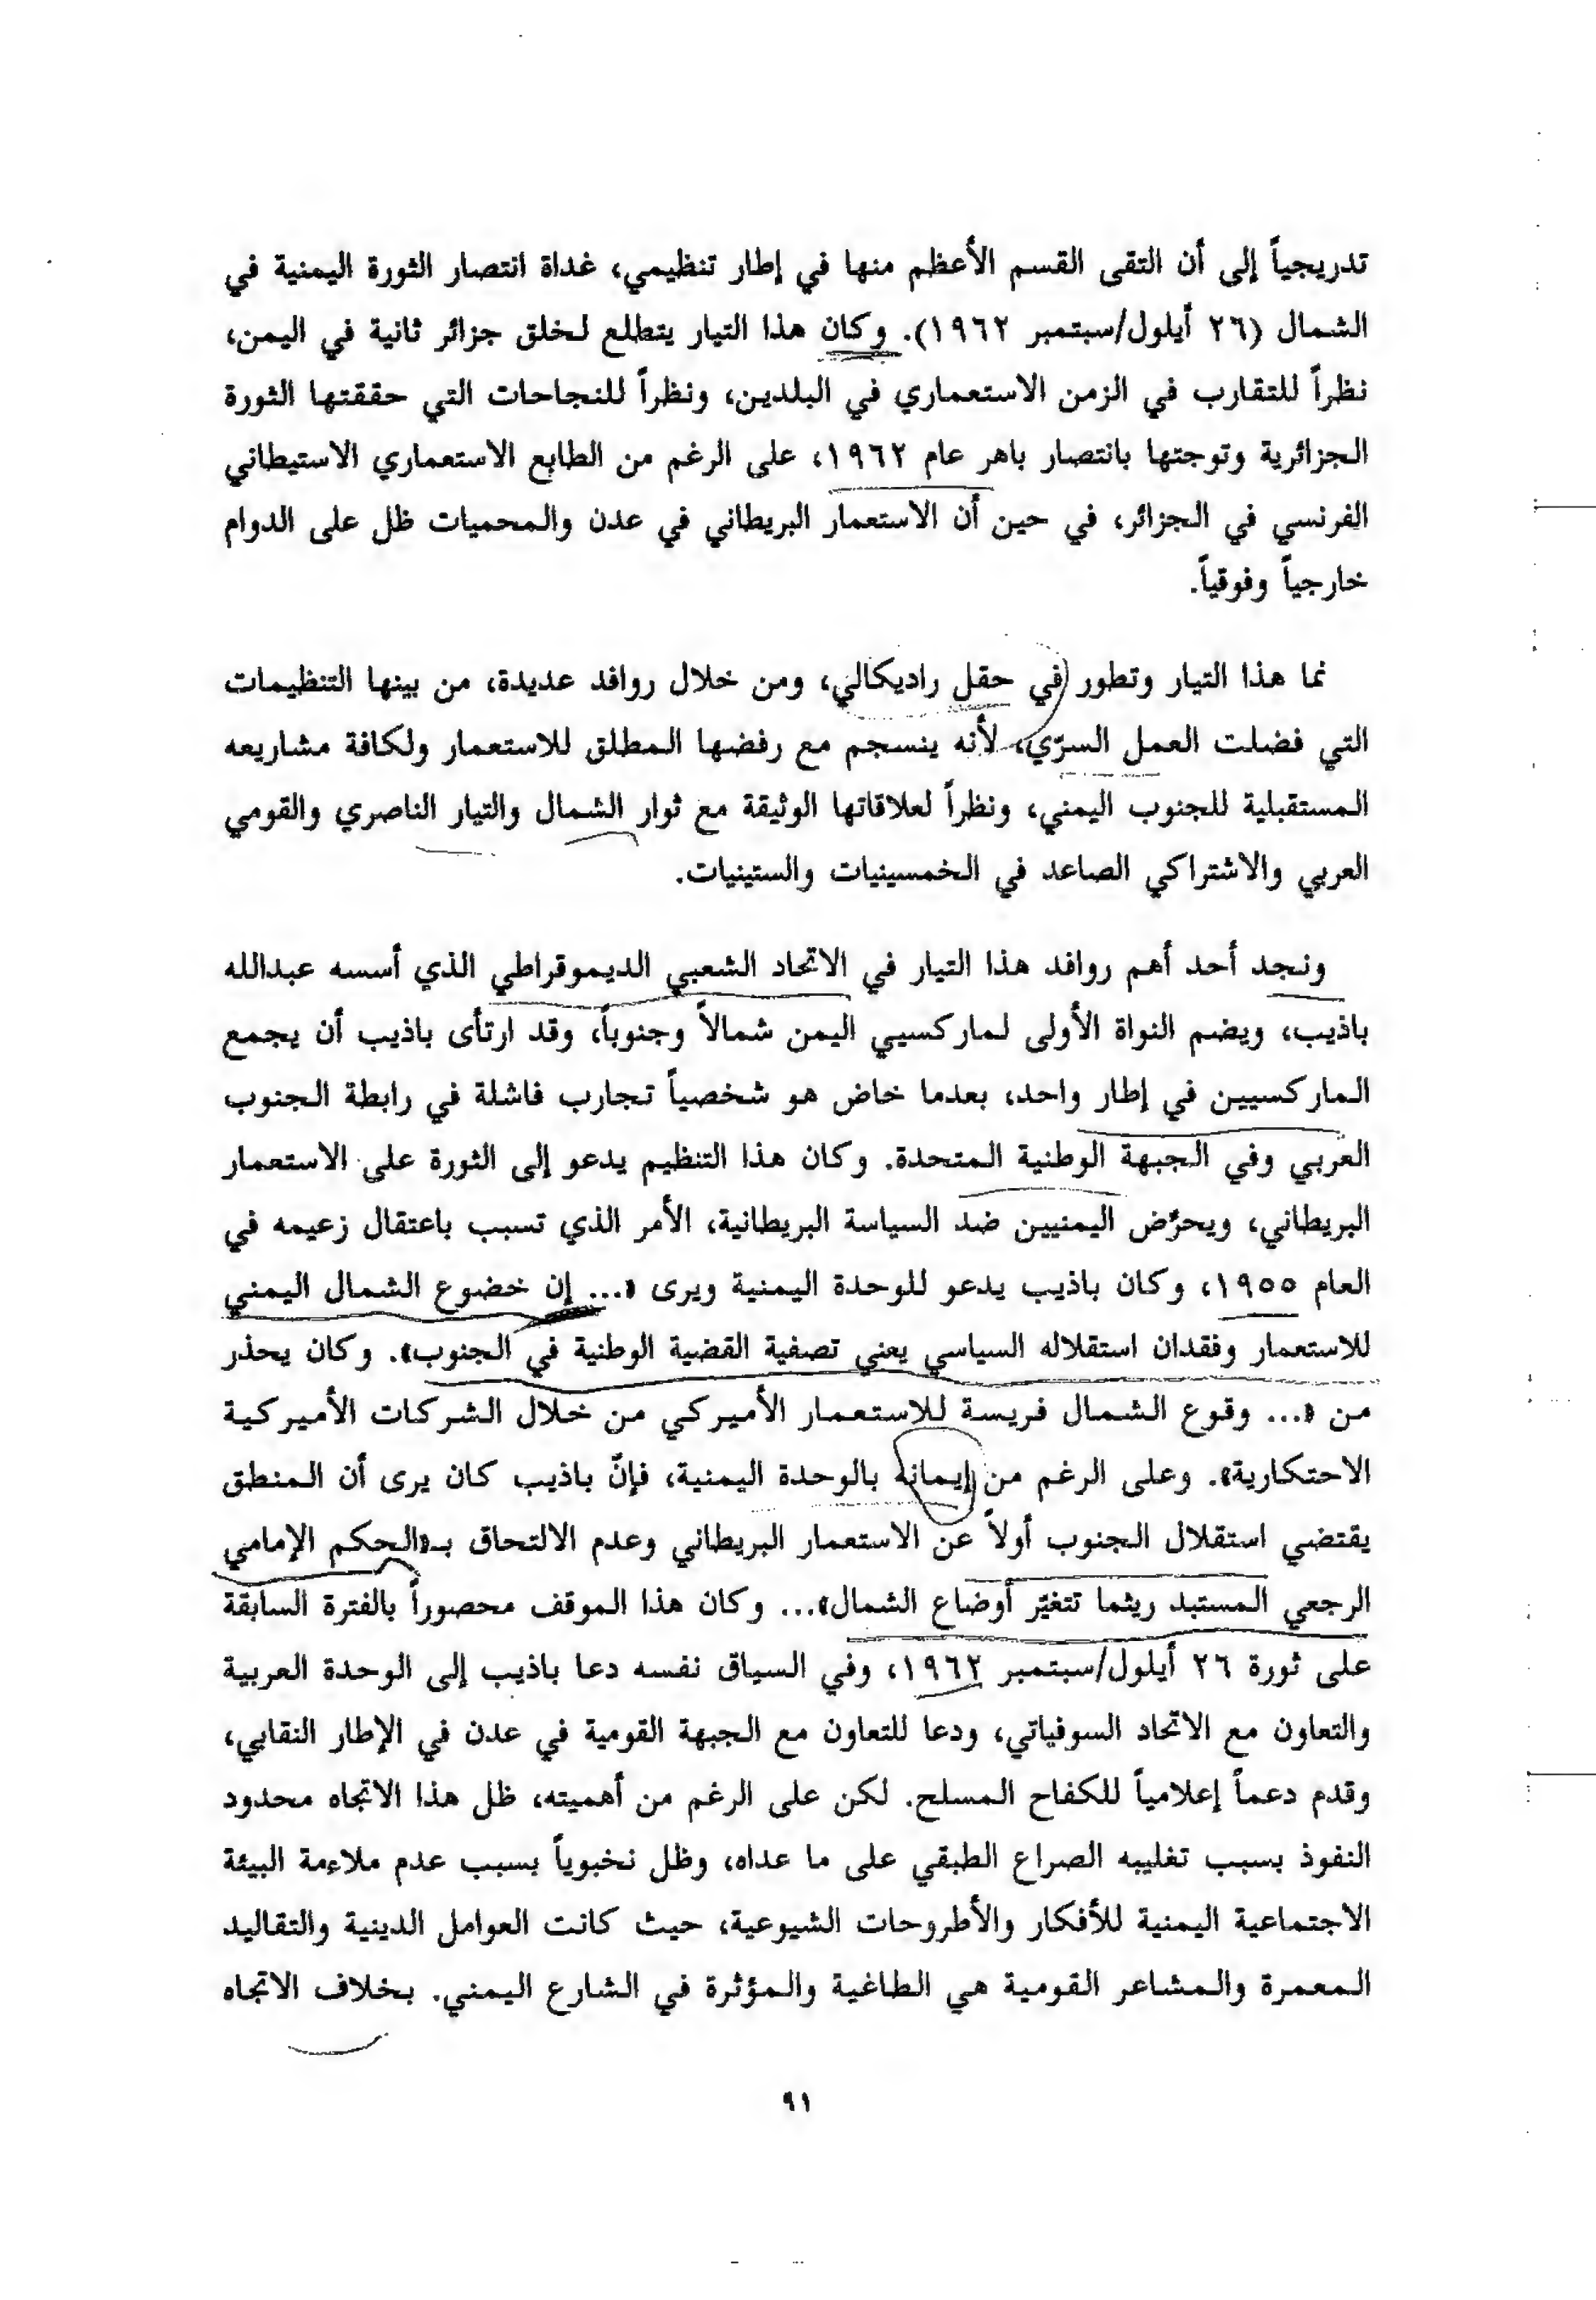 تدريجياً إلى أن التقى القسم الأعظم منها في إطار تنظيمي، غداة انتصار الثورة اليمنية في
الشمال (٢٦ أيلول/سبتمبر ١٩٦٢). وكان هذا التيار يتطلع لخلق جزائر ثانية في اليمن،
نظراً للتقارب في الزمن الاستعماري في البلدين، ونظراً للنجاحات التي حققتها الثورة
الجزائرية وتوجتها بانتصار باهر عام ١٩٦٢، على الرغم من الطابع الاستعماري الاستيطاني
الفرنسي في الجزائر، في حين أن الاستعمار البريطاني في عدن والمحميات ظل على الدوام
خارجياً وفوقياً.
نما هذا التيار وتطور في حقل راديكالي، ومن خلال روافد عديدة، من بينها التنظيمات
التي فضلت العمل السرّي، لأنه ينسجم مع رفضها المطلق للاستعمار ولكافة مشاريعه
المستقبلية للجنوب اليمني، ونظراً لعلاقاتها الوثيقة مع ثوار الشمال والتيار الناصري والقومي
العربي والاشتراكي الصاعد في الخمسينيات والستينيات.
ونجد أحد أهم روافد هذا التيار في الاتحاد الشعبي الديموقراطي الذي أسسه عبدالله
باذيب، ويضم النواة الأولى لماركسيي اليمن شمالاً وجنوباً، وقد ارتأى باذيب أن يجمع
الماركسيين في إطار واحد، بعدما خاض هو شخصياً تجارب فاشلة في رابطة الجنوب
العربي وفي الجبهة الوطنية المتحدة. وكان هذا التنظيم يدعو إلى الثورة على الاستعمار
البريطاني، ويحرّض اليمنيين ضد السياسة البريطانية، الأمر الذي تسبب باعتقال زعيمه في
العام ١٩٥٥، وكان باذيب يدعو للوحدة اليمنية ويرى «... إن خضوع الشمال اليمني
للاستعمار وفقدان استقلاله السياسي يعني تصفية القضية الوطنية في الجنوب». وكان يحذر
من «... وقوع الشمال فريسة للاستعمار الأميركي من خلال الشركات الأميركية
الاحتكارية». وعلى الرغم من إيمانه بالوحدة اليمنية، فإنّ باذيب كان يرى أن المنطق
يقتضي استقلال الجنوب أولاً عن الاستعمار البريطاني وعدم الالتحاق بـ«الحكم الإمامي
الرجعي المستبد ريثما تتغيّر أوضاع الشمال»... وكان هذا الموقف محصوراً بالفترة السابقة
على ثورة ٢٦ أيلول/سبتمبر ١٩٦٢، وفي السياق نفسه دعا باذيب إلى الوحدة العربية
والتعاون مع الاتحاد السوفياتي، ودعا للتعاون مع الجبهة القومية في عدن في الإطار النقابي،
وقدم دعماً إعلامياً للكفاح المسلح. لكن على الرغم من أهميته، ظل هذا الاتجاه محدود
النفوذ بسبب تغليبه الصراع الطبقي على ما عداه، وظل نخبوياً بسبب عدم ملاءمة البيئة
الاجتماعية اليمنية للأفكار والأطروحات الشيوعية، حيث كانت العوامل الدينية والتقاليد
المعمرة والمشاعر القومية هي الطاغية والمؤثرة في الشارع اليمني. بخلاف الاتجاه
٩١